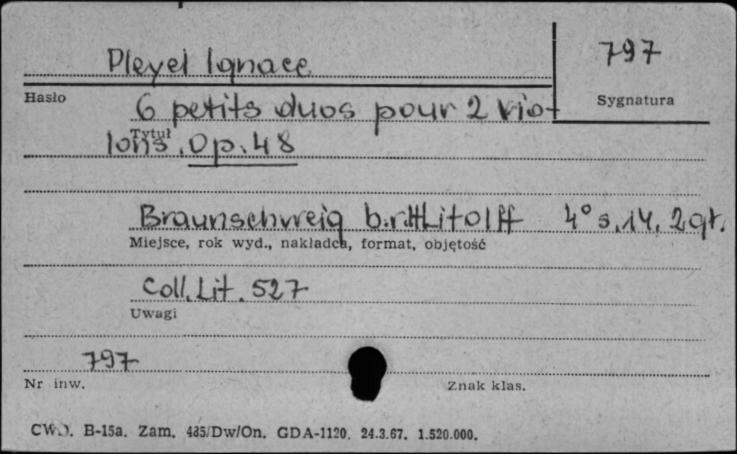 Pleyel Ignace
797
Hasło
Sygnatura
6 petits duos pour 2 vio-
Tytuł
lons. Op. 48
Braunschweig b.r. H Litolff 4° s. 14, 2 gł.
Miejsce, rok wyd., nakładca, format, objętość
Coll. Lit. 527
Uwagi
797
Nr inw.
Znak klas.
CWD. B-15a. Zam. 485/Dw/On. GDA-1120. 24.3.67. 1.520.000.